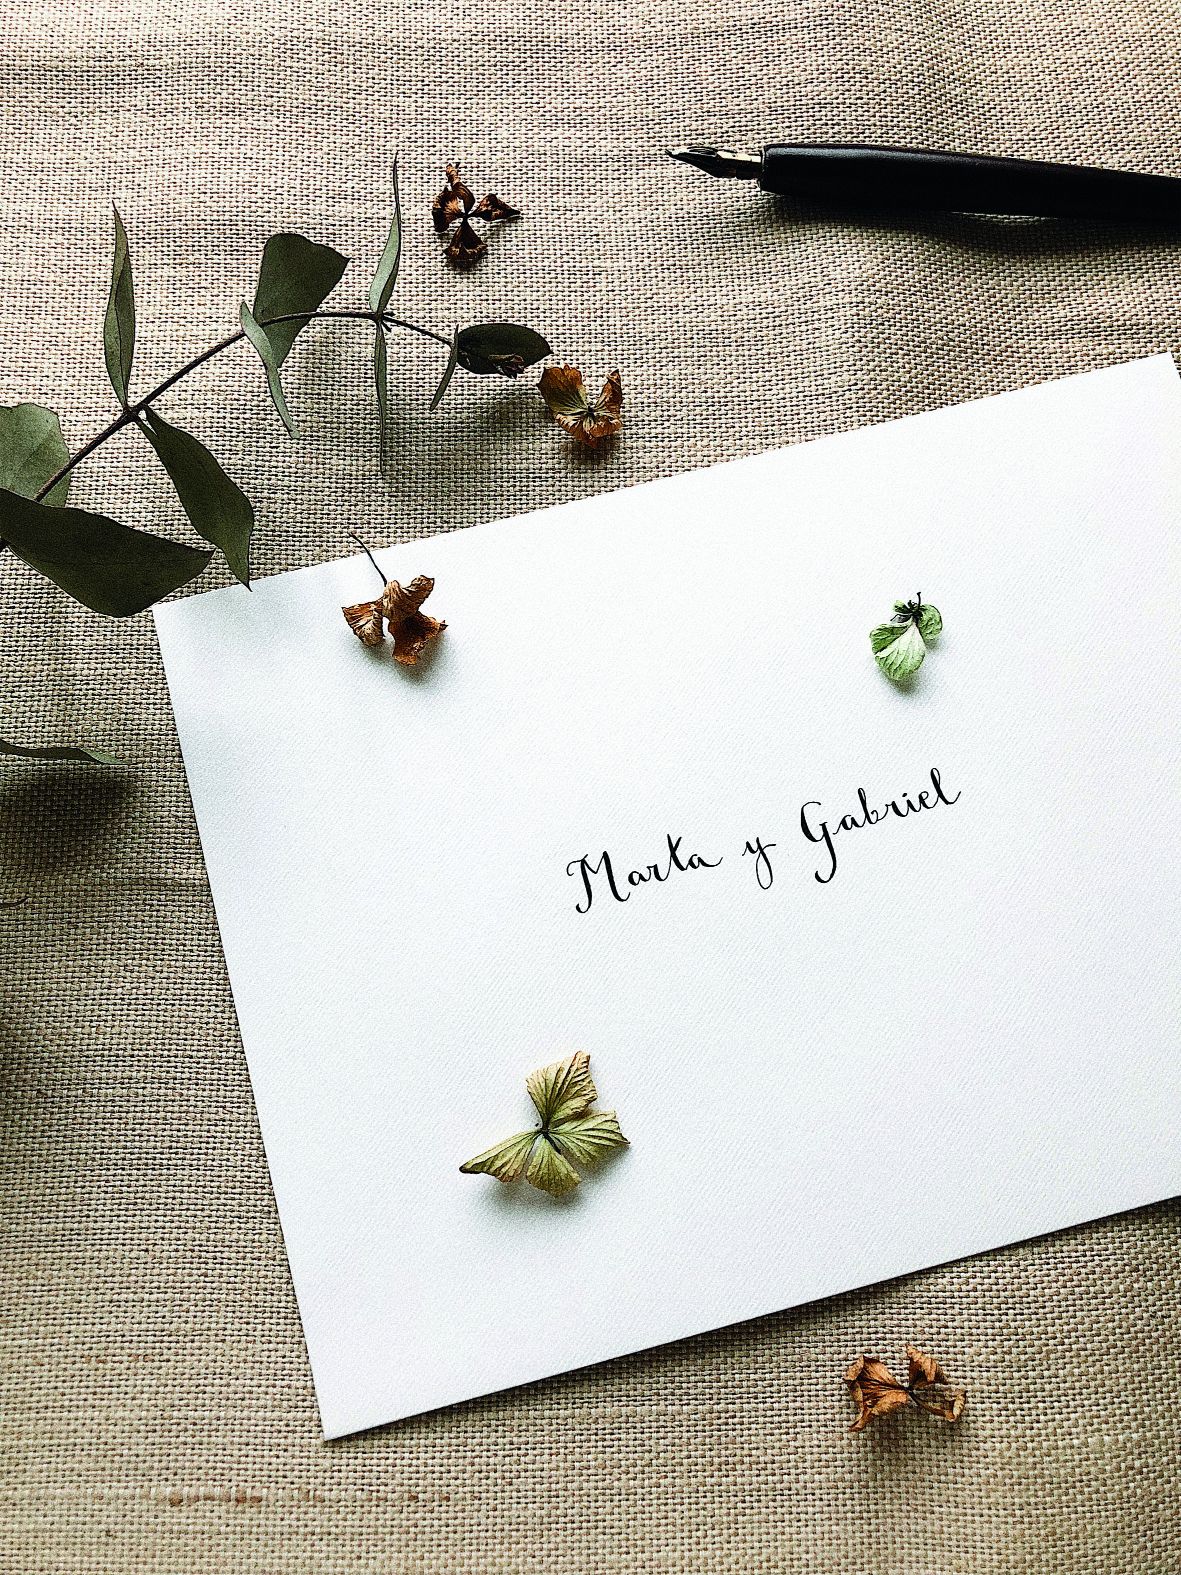 Marta y Gabriel